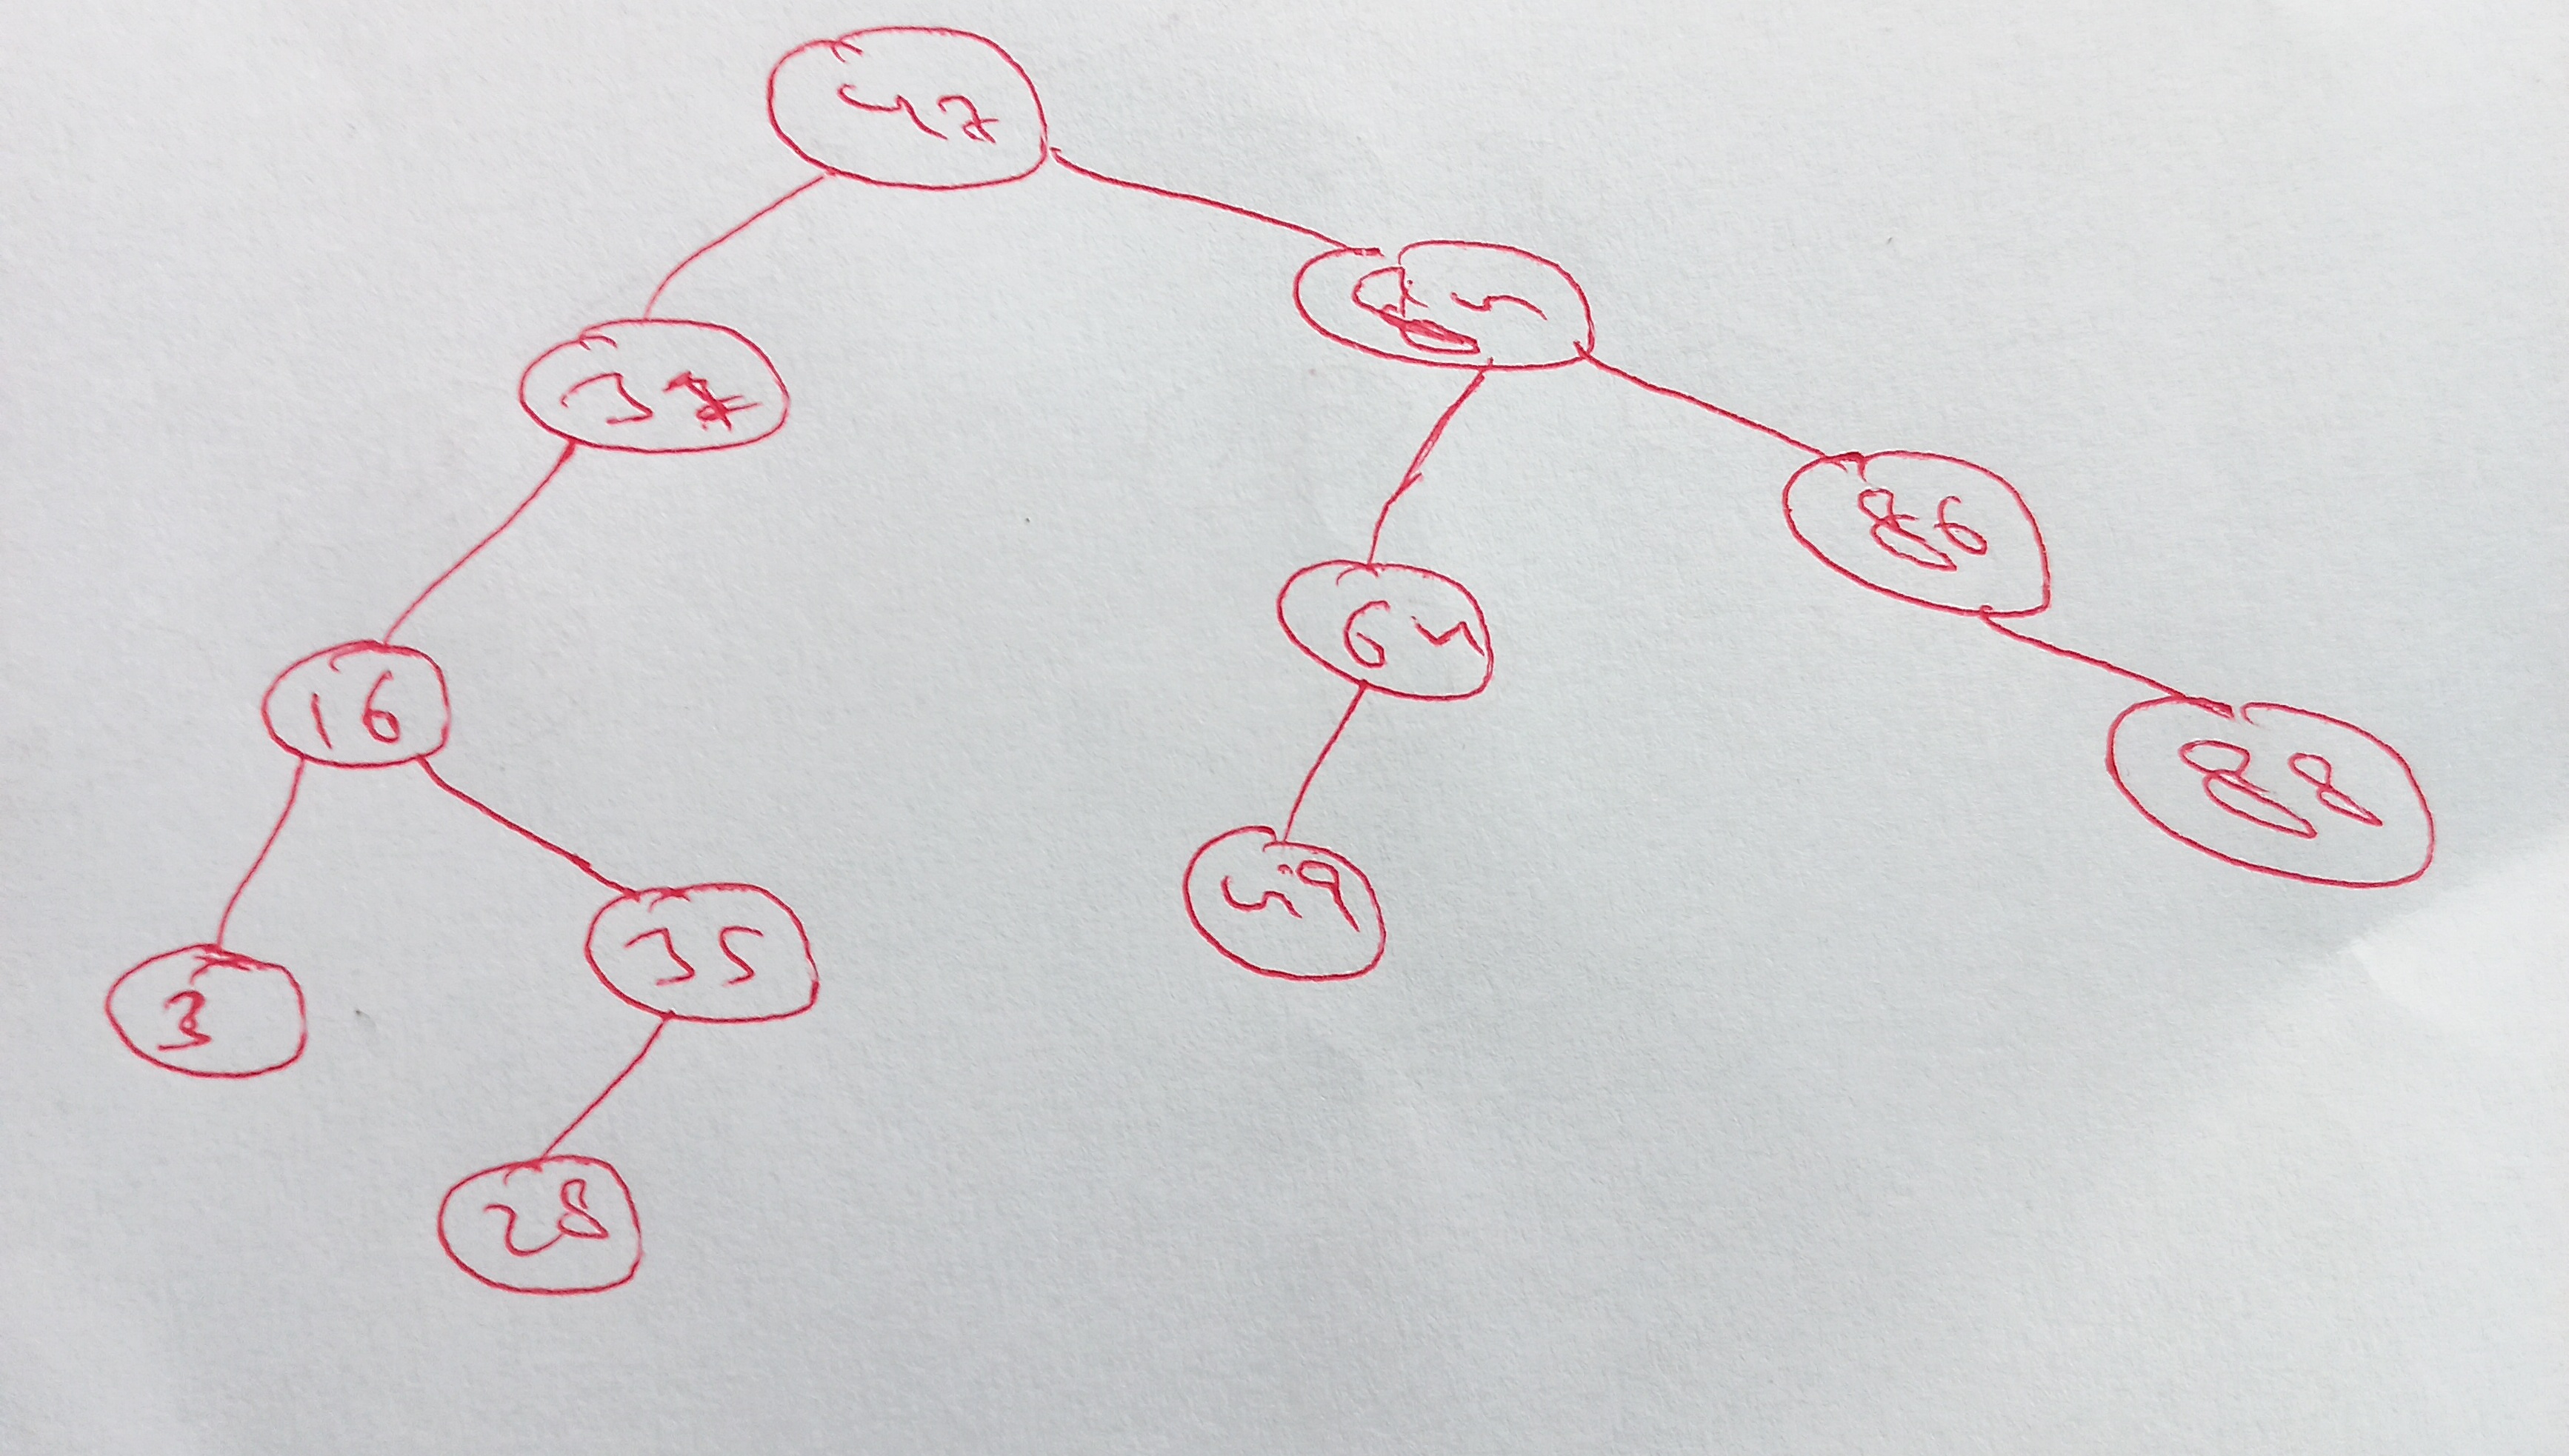 47
37
84
16
64
86
3
35
49
88
28